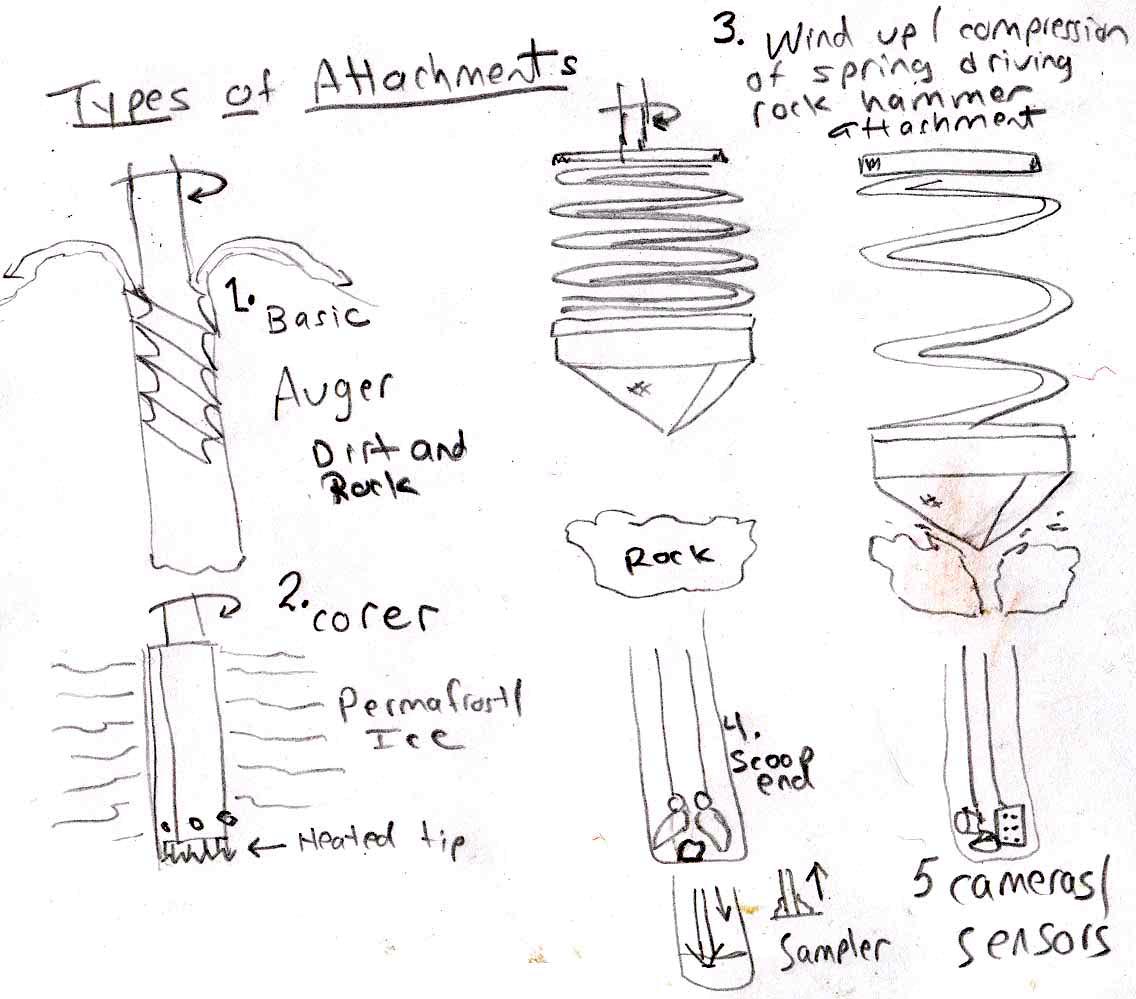 Types of Attachments
1. Basic
Auger
Dirt and
Rock
2. corer
Permafrost/
Ice
Heated tip
3. Wind up/compression
of spring driving
rock hammer
attachment
Rock
4.
Scoop
end
Sampler
5 cameras/
sensors